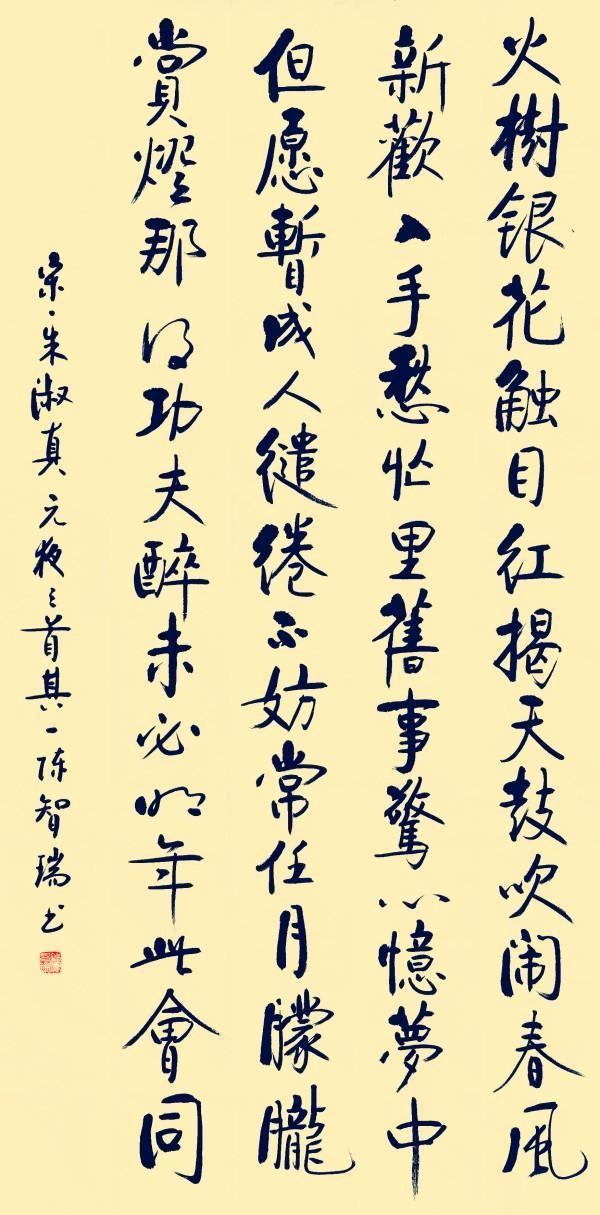 火樹银花触目红揭天鼓吹闹春风
新歡入手愁忙里舊事驚心憶夢中
但愿暫成人繾綣不妨常任月朦朧
賞燈那得功夫醉未必明年此會同
宋·朱淑真元夜三首其一陈智瑞书